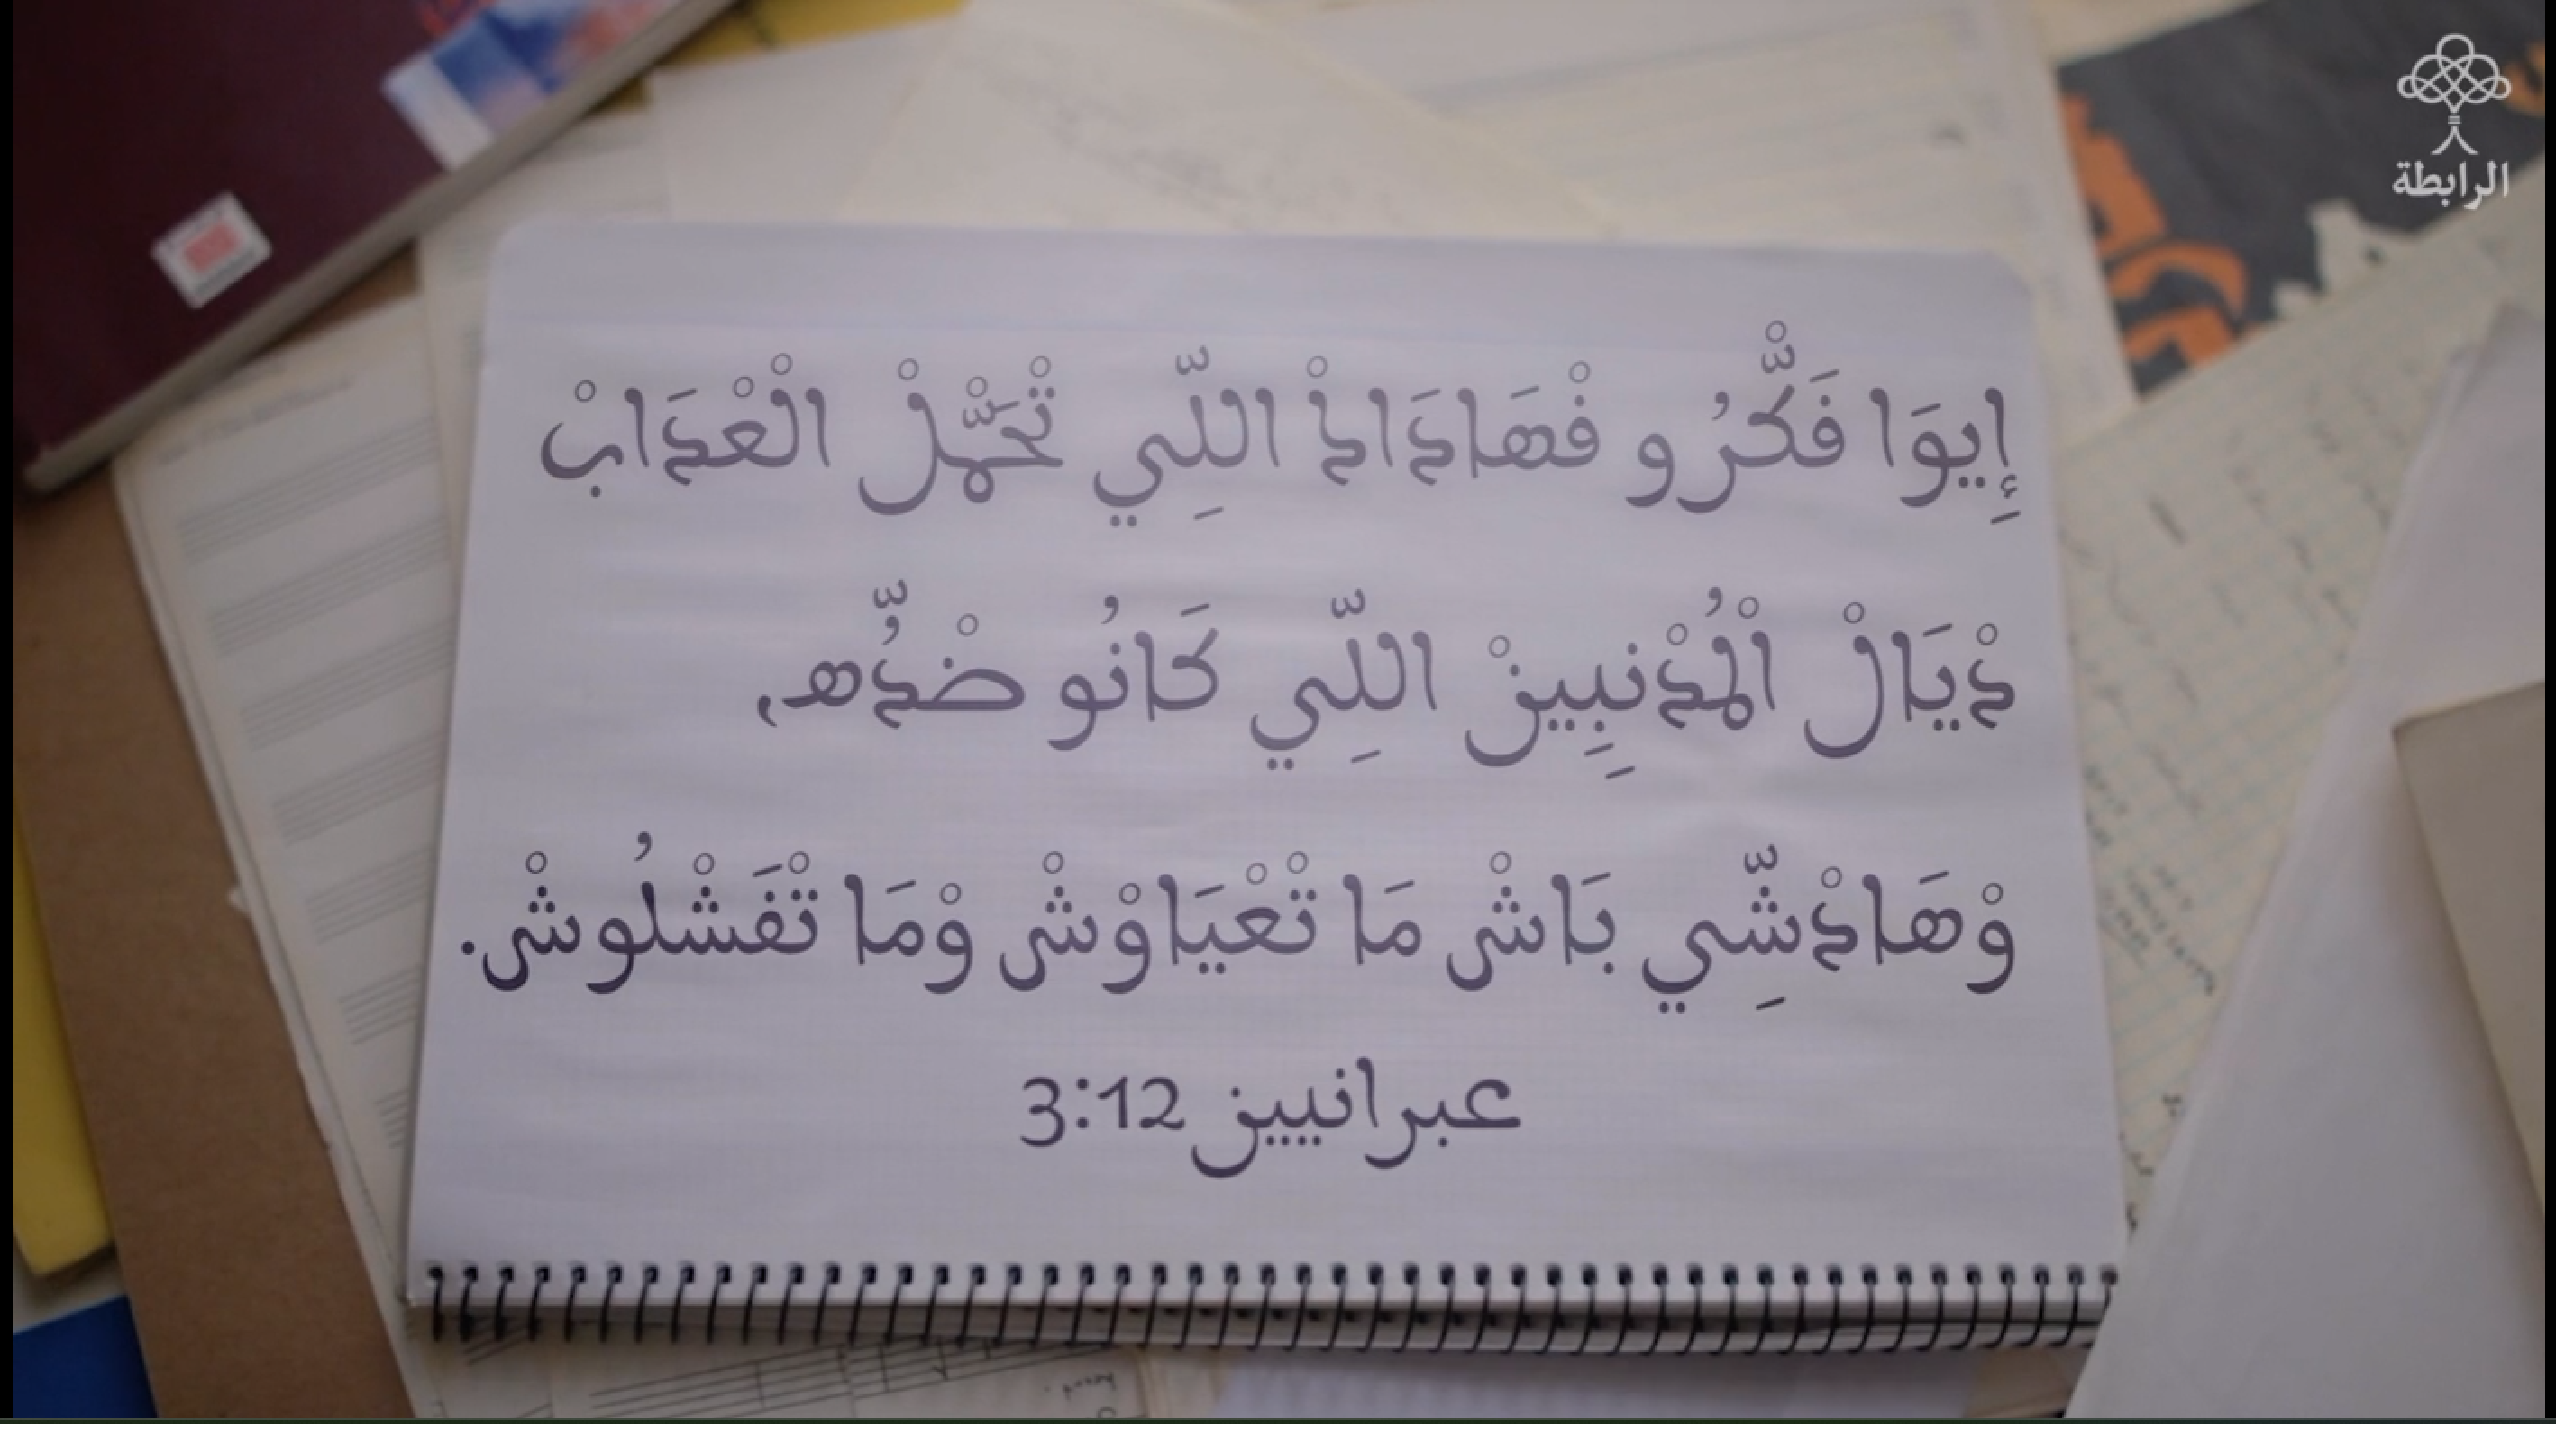 الرابطة
إِيوَا فَكّْرُو فْهَادَاكْ اللِّي تْحَمّْلْ الْعْدَابْ
دْيَالْ الْمُدْنِبِينْ اللِّي كَانُو ضْدُّه،
وْهَادْشِّي بَاشْ مَا تْعْيَاوْشْ وْمَا تْفَشْلُوشْ.
عبرانيين 3:12